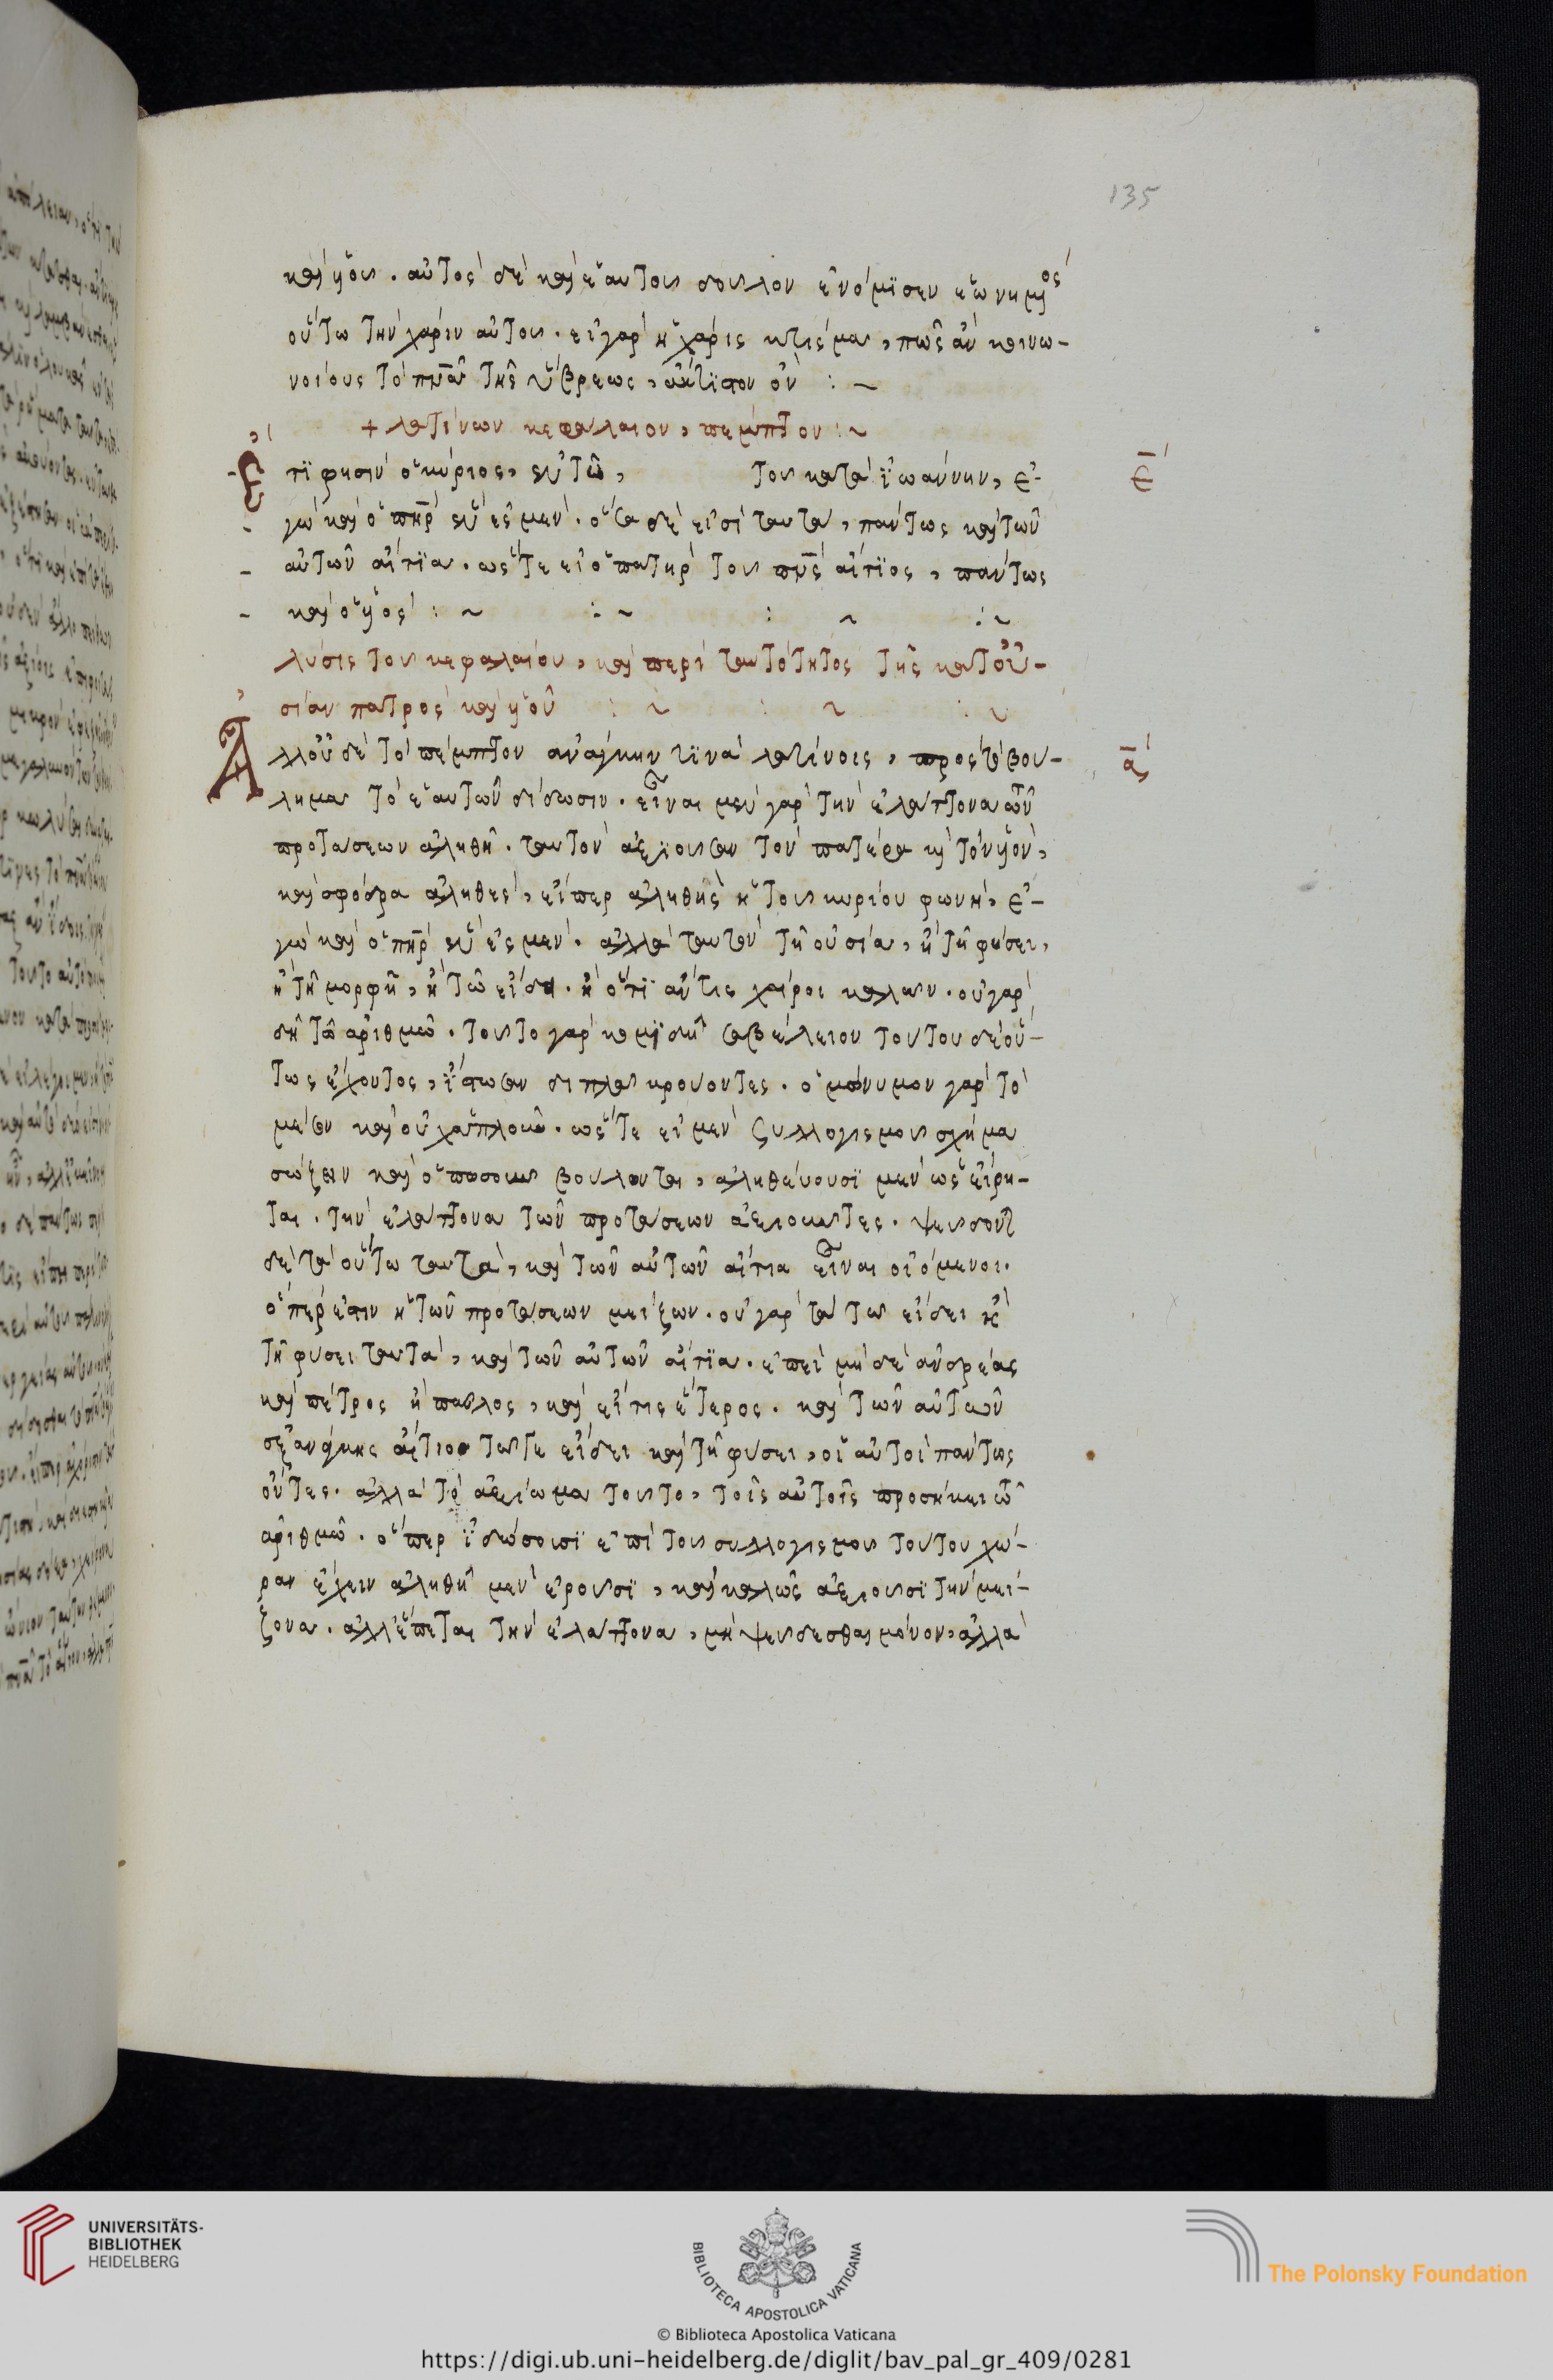 135
καὶ υἱοῦ. αὐτὸς δὲ καὶ ἑαυτοῦ δοῦλον ἐνόμισεν
οὕτω τὴν χάριν αὐτοῦ. εἰ γὰρ ἡ χάρις κτίσμα, πῶς ἂν κοινω-
νοίους τὸ πνᾶ τῆς ὕβρεως, ἄκτιστον ὄν :~
+ λατίνων κεφάλαιον, πέμπτον :~
Ἔτι φησὶν ὁ κύριος, ἐν τῷ, τοῦ κατὰ ἰωάννην, ἐ- ε̄
γὼ καὶ ὁ πηρ ἕν ἐσμεν. ὅσα δὲ εἰσὶ ταυτα, πάντως καὶ τῶν
αὐτῶν αἴτϊα. ὥστε εἰ ὁ πατὴρ τοῦ πνς αἴτϊος, πάντως
καὶ ὁ υἱός :~ :~ : ~ :~
λύσις τοῦ κεφαλαίου, καὶ περὶ ταυτότητος τῆς κατ οὐ-
σίαν πατρὸς καὶ υἱοῦ : ~ : ~ : ~
Ἀλλ οὐδὲ τὸ πέμπτον ἀνάγκην τϊνὰ λατίνοις, πρὸς τὸ βού- ᾱ
λημα τὸ ἑαυτῶν δίδωσιν. εἶναι μὲν γὰρ τὴν ἐλάττονα τῶν
προτάσεων ἀληθῆ. ταυτὸν ἀξιοῦσαν τὸν πατέρα καὶ τὸν υἱὸν,
καὶ σφόδρα ἀληθὲς, εἴπερ ἀληθὴς ἡ τοῦ κυρίου φωνὴ, ἐ-
γὼ καὶ ὁ πηρ ἕν ἐσμεν. ἀλλὰ ταυτὸν τῆ οὐσία, ἢ τῆ φύσει,
ἢ τῆ μορφῆ, ἢ τῶ εἴδει. ἢ ὅτϊ ἄν τις χαίροι καλῶν. οὐ γὰρ
δὴ τῶ ἀριθμῶ. τοῦτο γὰρ κομϊδῆ σαβέλειον τούτου δὲ οὕ-
τως ἔχοντος, ἴστωσαν διπλᾶ κρούοντες. ὁμώνυμον γὰρ τὸ
μέσον καὶ οὐχ ἁπλοῦν. ὥστε εἰ μὲν ξυλλογισμοῦ σχῆμα
σώζειν καὶ ὁπωσοῦν βούλονται, ἀληθεύουσϊ μὲν ὡς εἴρη-
ται. τὴν ἐλάττονα τῶν προτάσεων ἀξιοῦντες. ψεύδοντ
δὲ τὰ οὕτω ταυτὰ, καὶ τῶν αὐτῶν αἴτια εἶναι οἰόμενοι.
ὅπερ ἐστιν ἡ τῶν προτάσεων μείζων. οὐ γὰρ τὰ τῶ εἴδει ἢ
τῆ φύσει ταυτὰ, καὶ τῶν αὐτῶν αἴτϊα. ἐπεὶ μὴ δὲ ἀνδρέας
καὶ πέτρος ἢ παῦλος, καὶ εἴ τις ἕτερος. καὶ τῶν αὐτῶν
δ ἐξ ἀνάγκης αἴτιοι τῶ γε εἴδει καὶ τῆ φύσει, οἱ αὐτοὶ πάντως
ὄντες. ἀλλὰ τὸ ἀξίωμα τοῦτο, τοῖς αὐτοῖς προσήκει τῶ
ἀριθμῶ. οὗπερ εἰ δώσουσϊ ἐπὶ τοῦ συλλογισμοῦ τούτου χώ-
ραν ἔχειν ἀληθῆ μὲν ἐροῦσϊ, καὶ καλῶς ἀξιοῦσϊ τὴν μεί-
ζονα. ἀλλ ἕπεται τὴν ἐλάττονα, μὴ ψεύδεσθαι μόνον, ἀλλὰ
UNIVERSITÄTS-
BIBLIOTHEK
HEIDELBERG
BIBLIOTECA APOSTOLICA VATICANA
The Polonsky Foundation
© Biblioteca Apostolica Vaticana
https://digi.ub.uni-heidelberg.de/diglit/bav_pal_gr_409/0281